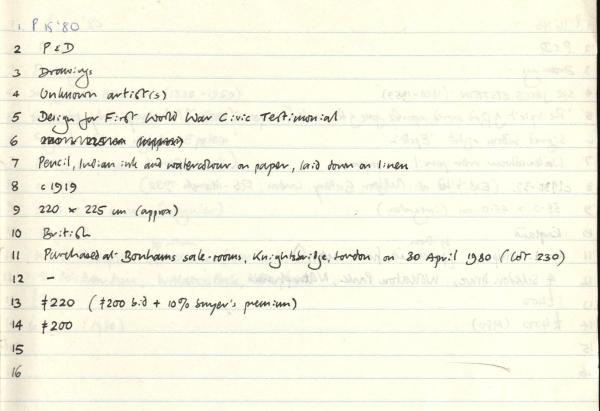 1 P 15 '80
2 P & D
3 Drawings
4 Unknown artist(s)
5 Design for First World War Civic Testimonial
6
7 Pencil, Indian ink and watercolour on paper, laid down on linen
8 c 1919
9 220 × 225 cm (approx)
10 British
11 Purchased at Bonhams sale-rooms, Knightsbridge, London on 30 April 1980 (LOT 230)
12 –
13 £220 (£200 bid + 10% buyer's premium)
14 £200
15
16